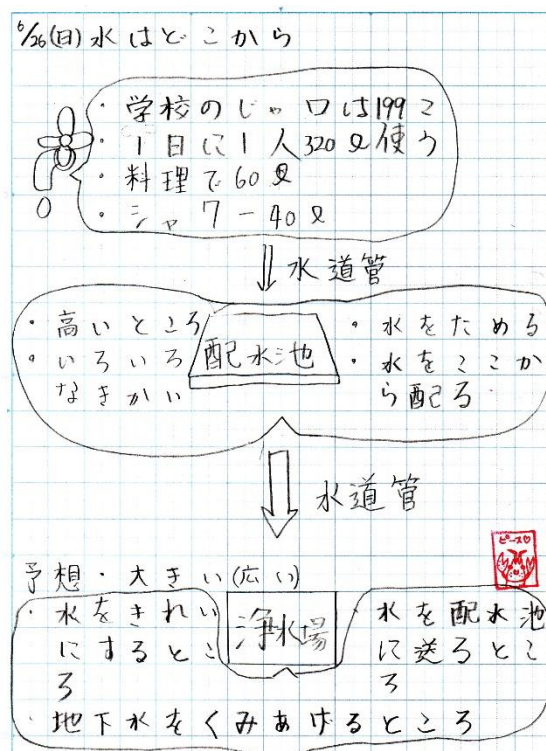 6/26(日)水はどこから
・学校のじゃ口は199こ
・1日に1人320ℓ使う
・料理で60ℓ
・シャワー40ℓ
水道管
・高いところ
・いろいろ
なきかい
配水池
・水をためる
・水をここか
ら配る
水道管
ピース♡
予想・大きい(広い)
・水をきれい
にするとこ
ろ
浄水場
・水を配水池
に送るとこ
ろ
・地下水をくみあげるところ